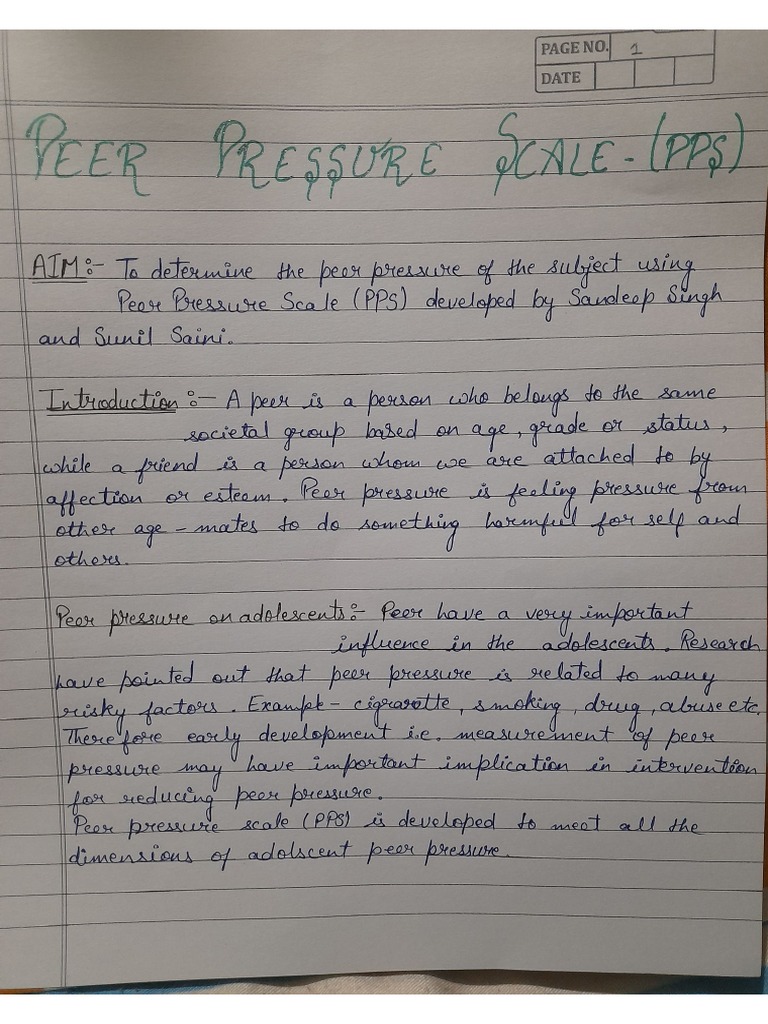 PAGE NO. 1
DATE
PEER PRESSURE SCALE-(PPS)
AIM:- To determine the peer pressure of the subject using
Peer Pressure Scale (PPS) developed by Sandeep Singh
and Sunil Saini.
Introduction :- A peer is a person who belongs to the same
societal group based on age, grade or status,
while a friend is a person whom we are attached to by
affection or esteem. Peer pressure is feeling pressure from
other age-mates to do something harmful for self and
others.
Peer pressure on adolescents:- Peer have a very important
influence in the adolescents. Research
have pointed out that peer pressure is related to many
risky factors. Example- cigrarette, smoking, drug, abuse etc.
Therefore early development i.e. measurement of peer
pressure may have important implication in intervention
for reducing peer pressure.
Peer pressure scale (PPS) is developed to meet all the
dimensions of adolscent peer pressure.